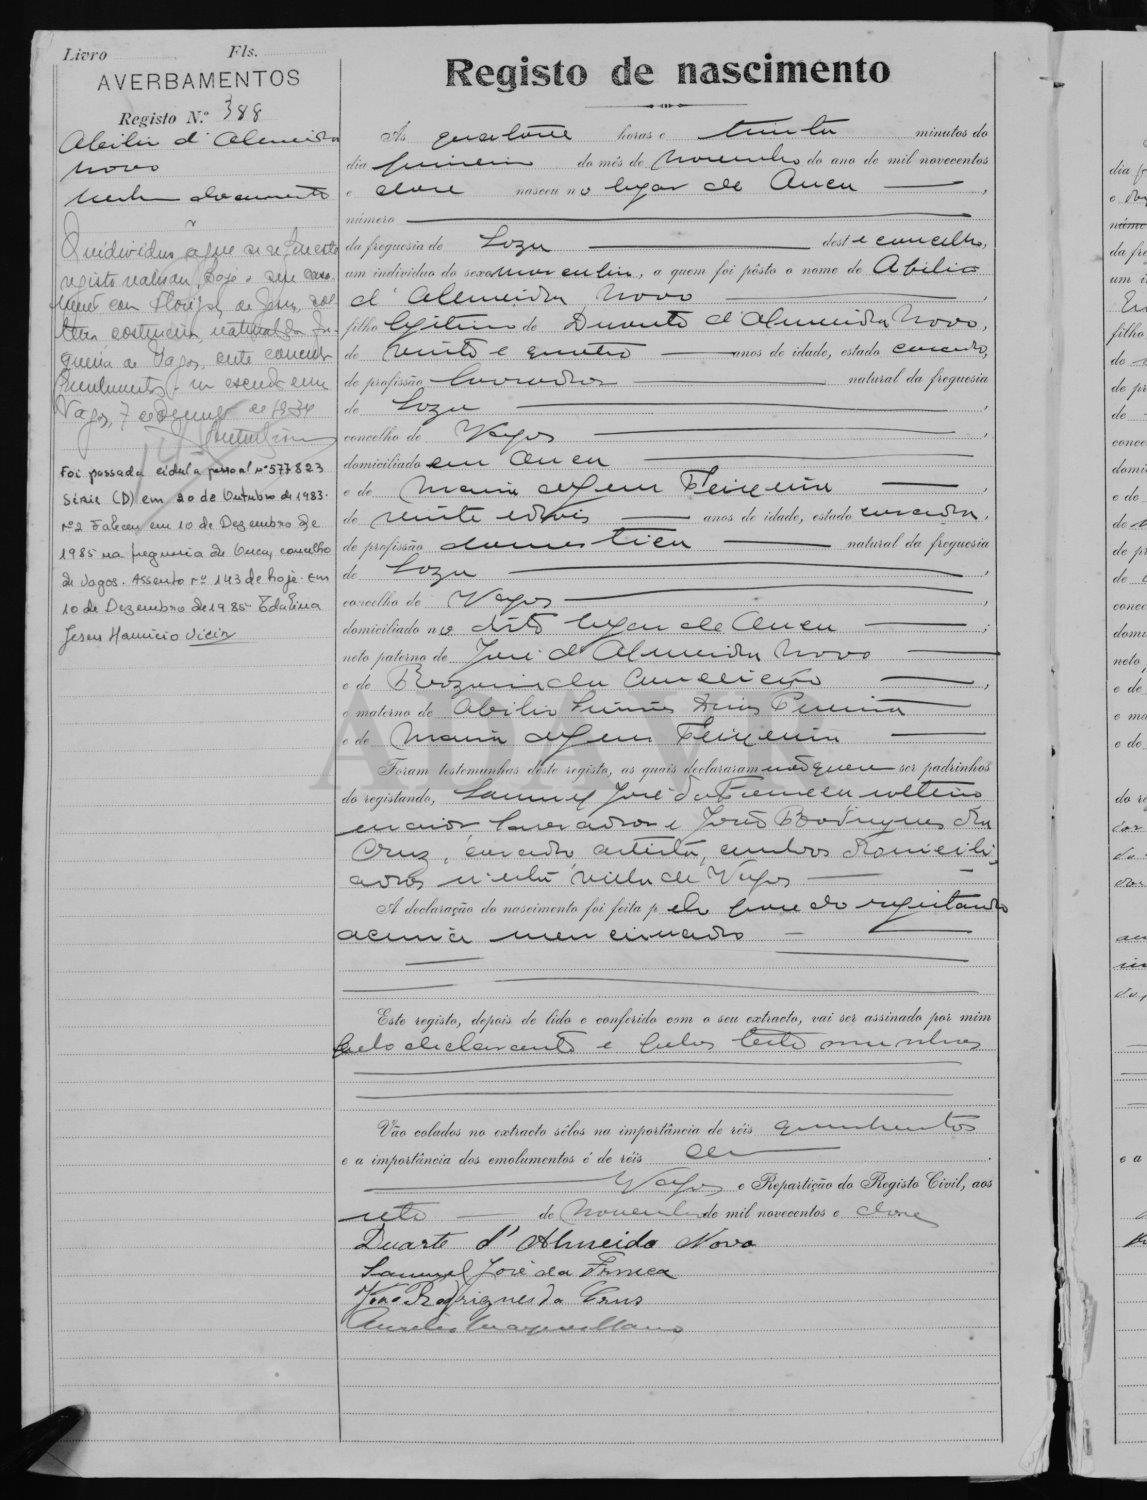 Livro Fls.
AVERBAMENTOS
Registo N.º 388
Abilio d'Almeida
Novo
O individuo a que se refere este
registo realisou hoje o seu casa-
mento com de Jesus, sol-
teira, costureira, natural da fre-
guesia de Vagos, este concelho
Vagos, 7 de de 1934
Foi passada cédula pessoal nº 577823
série (D) em 20 de Outubro de 1983.
nº 2 Faleceu em 10 de Dezembro de
1985 na freguesia de Ouca, concelho
de Vagos. Assento nº 143 de hoje. Em
10 de Dezembro de 1985.
Jesus Vieira
Registo de nascimento
Às quatorze horas e trinta minutos do
dia primeiro do mês de Novembro do ano de mil novecentos
e doze nasceu no logar de Ouca,
número
da freguesia de Soza deste concelho,
um individuo do sexo masculino, a quem foi pôsto o nome de Abilio
d'Almeida Novo,
filho legitimo de Duarte d'Almeida Novo,
de vinte e quatro anos de idade, estado casado,
de profissão lavrador natural da freguesia
de Soza,
concelho de Vagos,
domiciliado em Ouca
e de Maria de Jesus Ferreira,
de vinte e dois anos de idade, estado casada,
de profissão domestica natural da freguesia
de Soza,
concelho de Vagos,
domiciliado no dito logar de Ouca;
neto paterno de José d'Almeida Novo
e de Conceição,
e materno de Abilio Pereira
e de Maria de Jesus Ferreira
Foram testemunhas dêste registo, as quais declararam não querer ser padrinhos
do registando, Samuel José da Fonseca solteiro
maior lavrador e João Rodrigues da
Cruz, casado, artista, ambos domicili-
ados n'esta villa de Vagos
A declaração do nascimento foi feita pelo pae do registando
acima mencionado
Este registo, depois de lido e conferido com o seu extracto, vai ser assinado por mim
pelo declarante e pelas testemunhas
Vão colados no extracto sêlos na importância de réis quinhentos
e a importância dos emolumentos é de réis
Vagos e Repartição do Registo Civil, aos
sete de Novembro de mil novecentos e doze
Duarte d'Almeida Novo
Samuel José da Fonseca
João Rodrigues da Cruz
ADAVR